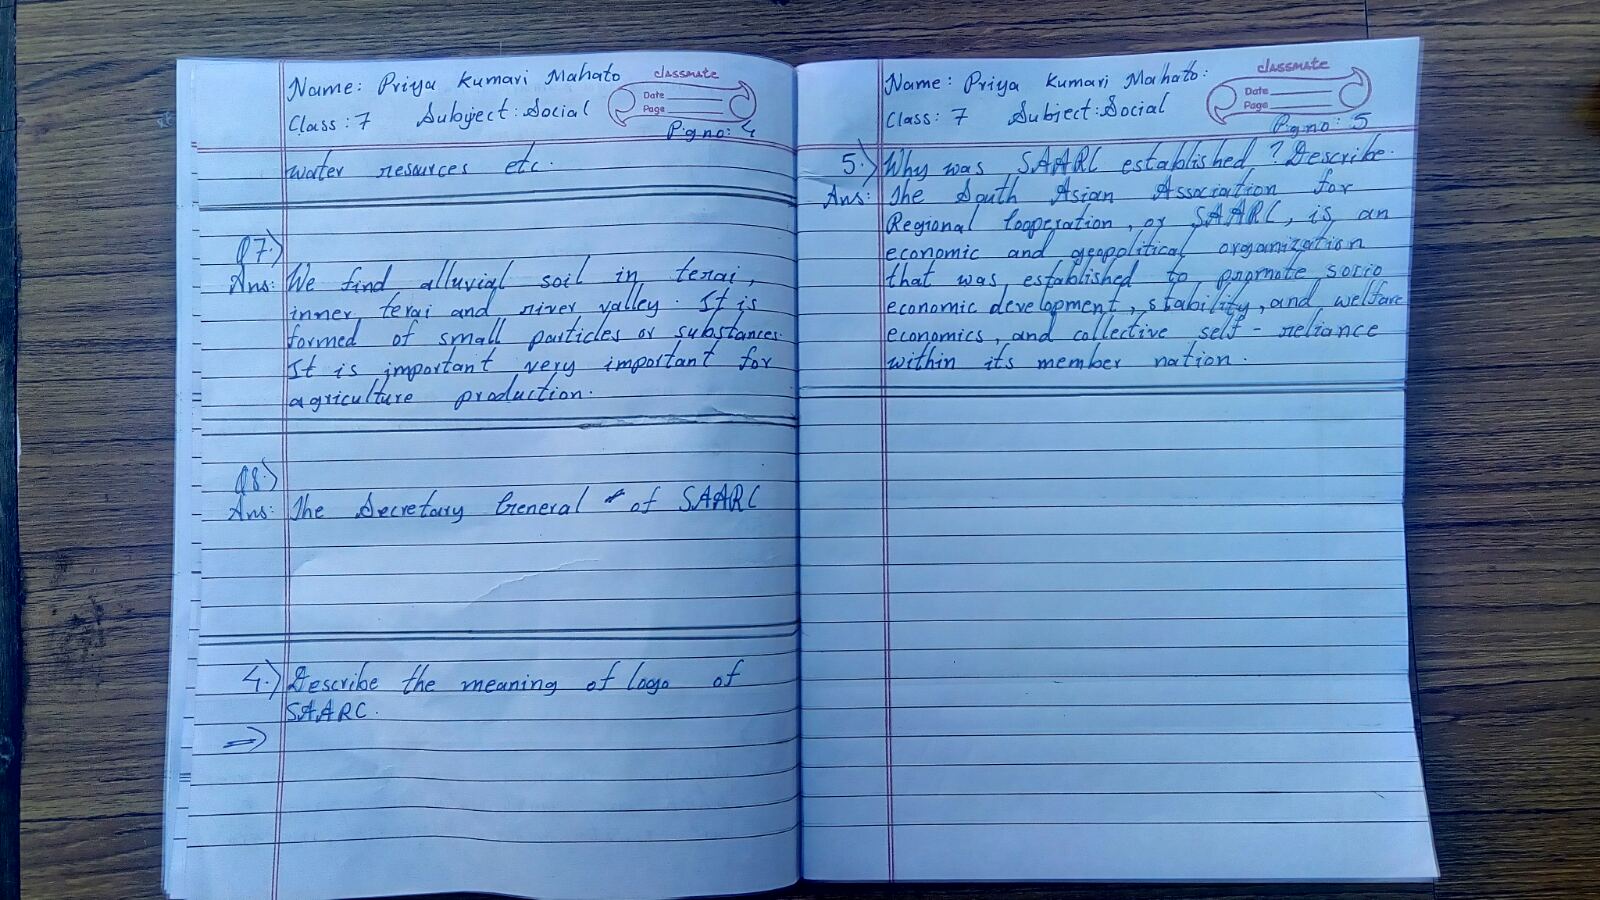 Name: Priya Kumari Mahato
classmate
Date
Page
Class: 7 Subject: Social
Pg no: 4
water resources etc.
Q7.)
Ans: We find alluvial soil in terai,
inner terai and river valley. It is
formed of small particles or substances.
It is important very important for
agriculture production.
Q8.)
Ans: The Secretary General of SAARC
4.) Describe the meaning of logo of
SAARC.
→
Name: Priya Kumari Mahato:
classmate
Date
Page
Class: 7 Subject: Social
Pg no: 5
5.) Why was SAARC established? Describe.
Ans: The South Asian Association for
Regional Cooperation, or SAARC, is an
economic and geopolitical organization
that was established to promote socio
economic development, stability, and welfare
economics, and collective self-reliance
within its member nation.